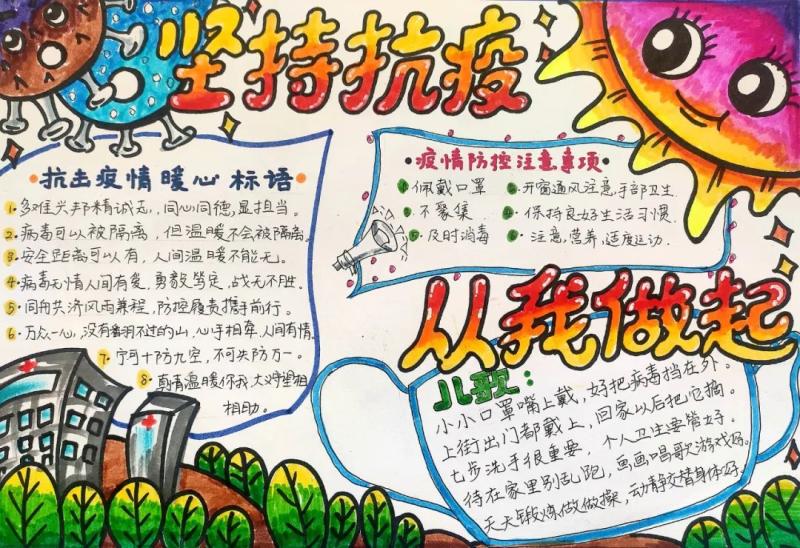 坚持抗疫
抗击疫情暖心标语
1. 多难兴邦精诚志，同心同德，显担当。
2. 病毒可以被隔离，但温暖不会被隔离。
3. 安全距离可以有，人间温暖不能无。
4. 病毒无情人间有爱，勇毅笃定，战无不胜。
5. 同舟共济风雨兼程，防控履责携手前行。
6. 万众一心，没有翻不过的山，心手相牵，人间有情。
7. 宁可十防九空，不可失防万一。
8. 真情温暖你我，大难坚相
相助。
疫情防控注意事项
佩戴口罩
不聚集
及时消毒
开窗通风注意，手部卫生
保持良好生活习惯。
注意，营养，适度运动。
从我做起
儿歌：
小小口罩嘴上戴，好把病毒挡在外。
上街出门都戴上，回家以后把它摘。
七步洗手很重要，个人卫生要管好。
待在家里别乱跑，画画唱歌游戏好。
天天锻炼做做操，动静交替身体好。